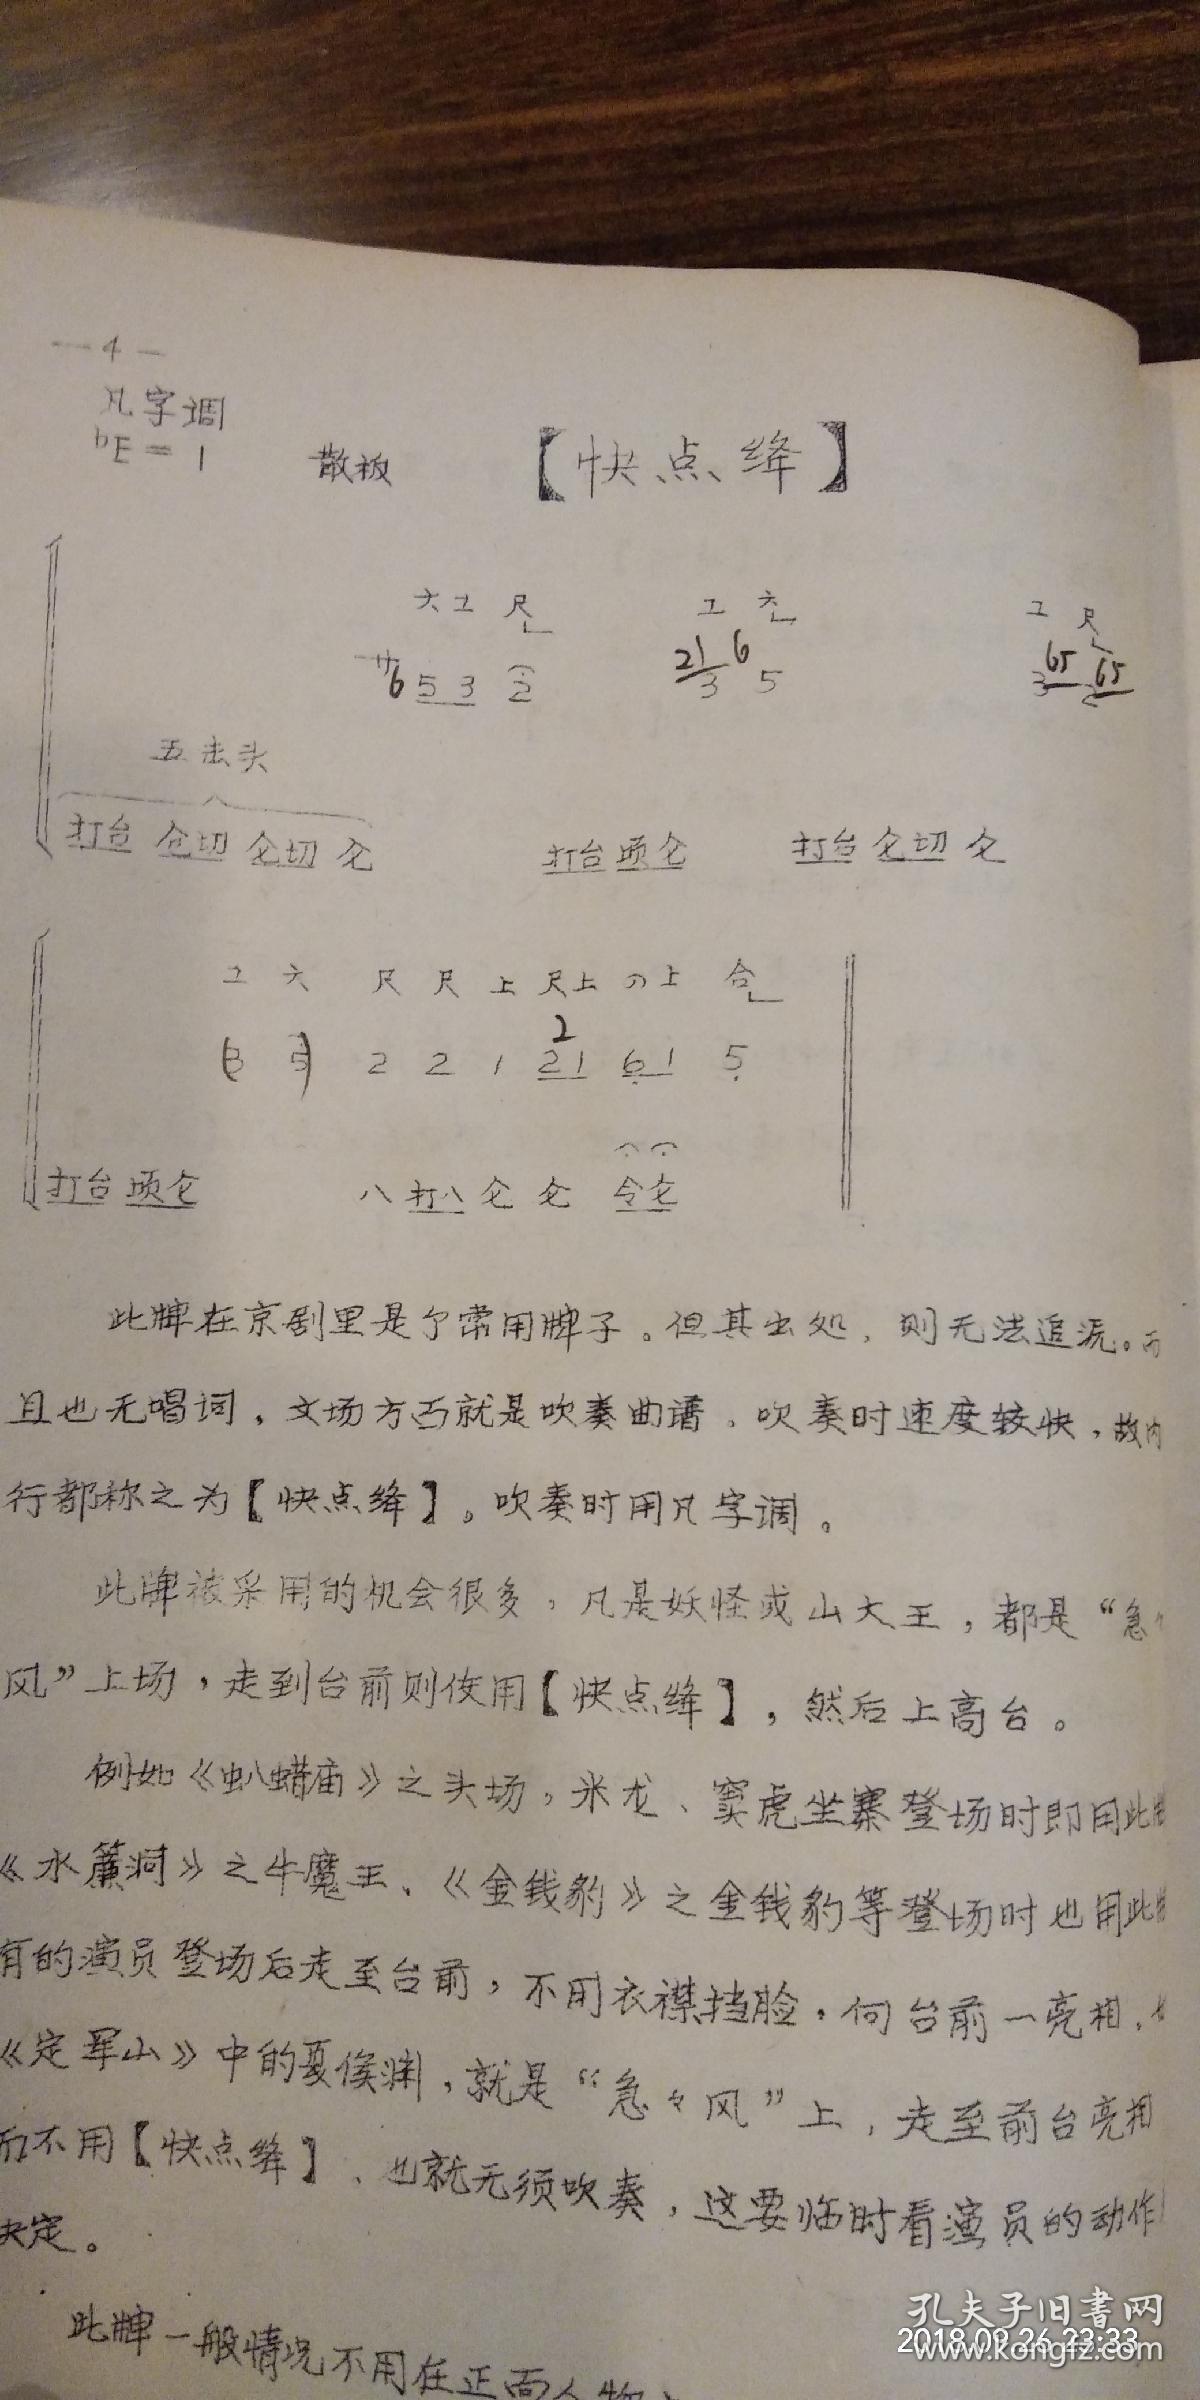 —4—
凡字调
bE=1 散板 【快点绛】
六工 尺 工 六 工 尺
21 6 65 65
サ6 5 3 2 3 5 3 2
五击头
打台 仓切 仑切 仑 打台 顷仑 打台 仑切 仑
工 六 尺 尺 上 尺上 上 合
2
(3 5) 2 2 1 21 61 5
打台 顷仑 八 打八 仑 仑 令仑
此牌在京剧里是个常用牌子。但其出处，则无法追泝。而
且也无唱词，文场方面就是吹奏曲谱。吹奏时速度较快，故内
行都称之为【快点绛】。吹奏时用凡字调。
此牌被采用的机会很多，凡是妖怪或山大王，都是“急々
风”上场，走到台前则使用【快点绛】，然后上高台。
例如《虮蜡庙》之头场，米龙、窦虎坐寨登场时即用此牌
《水簾洞》之牛魔王、《金钱豹》之金钱豹等登场时也用此牌
有的演员登场后走至台前，不用衣襟挡脸，向台前一亮相，
《定军山》中的夏侯渊，就是“急々风”上，走至前台亮相
而不用【快点绛】、也就无须吹奏，这要临时看演员的动作
决定。
此牌一般情况不用在正面人物
孔夫子旧书网
www.kongfz.com
2018.09.26 23:33